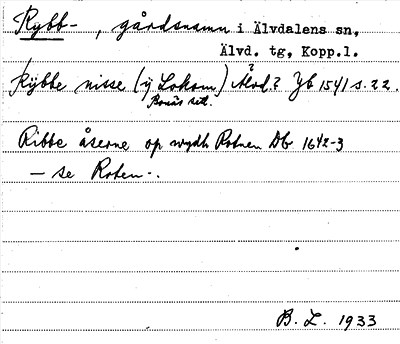 Rybb- , gårdsnamn i Älvdalens sn,
Älvd. tg, Kopp.l.
Rÿbbe nisse (ÿ Lokom) Älvd.? Jb 1541 s. 22.
Ribbe åserne op wydh Rotnen Db 1642-3
— se Roten-.
B. L. 1933